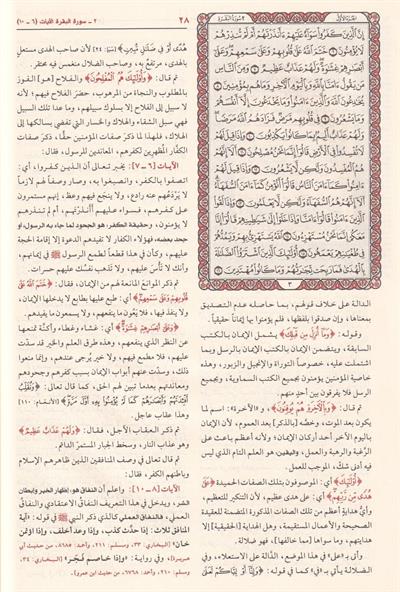 ٢٨
٢ - سورة البقرة، الآيات (٦ - ١٠)
الجزء الأول
سورة البقرة
إِنَّ الَّذِينَ كَفَرُوا سَوَاءٌ عَلَيْهِمْ ءَأَنذَرْتَهُمْ أَمْ لَمْ تُنذِرْهُمْ
لَا يُؤْمِنُونَ ۝ خَتَمَ اللَّهُ عَلَىٰ قُلُوبِهِمْ وَعَلَىٰ سَمْعِهِمْ وَعَلَىٰ
أَبْصَارِهِمْ غِشَاوَةٌ وَلَهُمْ عَذَابٌ عَظِيمٌ ۝ وَمِنَ النَّاسِ
مَن يَقُولُ ءَامَنَّا بِاللَّهِ وَبِالْيَوْمِ الْآخِرِ وَمَا هُم بِمُؤْمِنِينَ ۝
يُخَادِعُونَ اللَّهَ وَالَّذِينَ ءَامَنُوا وَمَا يَخْدَعُونَ إِلَّا أَنفُسَهُمْ
وَمَا يَشْعُرُونَ ۝ فِي قُلُوبِهِم مَّرَضٌ فَزَادَهُمُ اللَّهُ مَرَضًا
وَلَهُمْ عَذَابٌ أَلِيمٌ بِمَا كَانُوا يَكْذِبُونَ ۝ وَإِذَا قِيلَ لَهُمْ
لَا تُفْسِدُوا فِي الْأَرْضِ قَالُوا إِنَّمَا نَحْنُ مُصْلِحُونَ ۝
أَلَا إِنَّهُمْ هُمُ الْمُفْسِدُونَ وَلَٰكِن لَّا يَشْعُرُونَ ۝ وَإِذَا قِيلَ لَهُمْ
ءَامِنُوا كَمَا ءَامَنَ النَّاسُ قَالُوا أَنُؤْمِنُ كَمَا ءَامَنَ السُّفَهَاءُ
أَلَا إِنَّهُمْ هُمُ السُّفَهَاءُ وَلَٰكِن لَّا يَعْلَمُونَ ۝ وَإِذَا لَقُوا الَّذِينَ
ءَامَنُوا قَالُوا ءَامَنَّا وَإِذَا خَلَوْا إِلَىٰ شَيَاطِينِهِمْ قَالُوا إِنَّا
مَعَكُمْ إِنَّمَا نَحْنُ مُسْتَهْزِءُونَ ۝ اللَّهُ يَسْتَهْزِئُ بِهِمْ وَيَمُدُّهُمْ
فِي طُغْيَانِهِمْ يَعْمَهُونَ ۝ أُولَٰئِكَ الَّذِينَ اشْتَرَوُا الضَّلَالَةَ
بِالْهُدَىٰ فَمَا رَبِحَت تِّجَارَتُهُمْ وَمَا كَانُوا مُهْتَدِينَ ۝
٣
الدالة على خلاف قولهم، بما حاصله عدم التصديق
بمعناها، وإن صدقوا بلفظها، فلم يؤمنوا بها إيماناً حقيقياً.
وقوله: ﴿وَمَا أُنزِلَ مِن قَبْلِكَ﴾ يشمل الإيمان بالكتب
السابقة، ويتضمن الإيمان بالكتب الإيمان بالرسل وبما
اشتملت عليه، خصوصاً التوراة والإنجيل والزبور، وهذه
خاصية المؤمنين يؤمنون بجميع الكتب السماوية وبجميع
الرسل فلا يفرقون بين أحد منهم.
ثم قال: ﴿وَبِالْآخِرَةِ هُمْ يُوقِنُونَ﴾، و«الآخرة»: اسم لما
يكون بعد الموت، وخصّه [بالذكر] بعد العموم، لأن الإيمان
باليوم الآخر أحد أركان الإيمان؛ ولأنه أعظم باعث على
الرغبة والرهبة والعمل، و«اليقين» هو العلم التام الذي ليس
فيه أدنى شك، الموجب للعمل.
﴿أُولَٰئِكَ﴾ أي: الموصوفون بتلك الصفات الحميدة ﴿عَلَىٰ
هُدًى مِّن رَّبِّهِمْ﴾ أي: على هدى عظيم، لأن التنكير للتعظيم،
وأيُّ هداية أعظم من تلك الصفات المذكورة المتضمنة للعقيدة
الصحيحة والأعمال المستقيمة، وهل الهداية [الحقيقية] إلا
هدايتهم، وما سواها [مما خالفها]، فهو ضلالة.
وأتى بـ «على» في هذا الموضع، الدالة على الاستعلاء، وفي
الضلالة يأتي بـ «في» كما في قوله: ﴿وَإِنَّا أَوْ إِيَّاكُمْ لَعَلَىٰ
هُدًى أَوْ فِي ضَلَالٍ مُّبِينٍ﴾ [سبأ: ٢٤] لأن صاحب الهدى مستعلٍ
بالهدى، مرتفع به، وصاحب الضلال منغمس فيه محتقر.
ثم قال: ﴿وَأُولَٰئِكَ هُمُ الْمُفْلِحُونَ﴾ والفلاح [هو] الفوز
بالمطلوب والنجاة من المرهوب، حصر الفلاح فيهم؛ لأنه
لا سبيل إلى الفلاح إلا بسلوك سبيلهم، وما عدا تلك السبيل
فهي سبل الشقاء والهلاك والخسار التي تفضي بسالكها إلى
الهلاك، فلهذا لما ذكر صفات المؤمنين حقاً، ذكر صفات
الكفار المظهرين لكفرهم، المعاندين للرسول، فقال:
الآيات [٦ - ٧] يخبر تعالى أن الذين كفروا، أي:
اتصفوا بالكفر، وانصبغوا به، وصار وصفاً لهم لازماً
لا يردعهم عنه رادع، ولا ينجع فيهم وعظ، إنهم مستمرون
على كفرهم، فسواء عليهم أأنذرتهم، أم لم تنذرهم
لا يؤمنون، وحقيقة الكفر، هو الجحود لما جاء به الرسول، أو
جحد بعضه، فهؤلاء الكفار لا تفيدهم الدعوة إلا إقامة الحجة
عليهم، وكأن في هذا قطعاً لطمع الرسول ﷺ في إيمانهم،
وأنك لا تأسَ عليهم، ولا تذهب نفسك عليهم حسرات.
ثم ذكر الموانع المانعة لهم من الإيمان، فقال: ﴿خَتَمَ اللَّهُ عَلَىٰ
قُلُوبِهِمْ وَعَلَىٰ سَمْعِهِمْ﴾ أي: طبع عليها بطابع لا يدخلها الإيمان،
ولا ينفذ فيها، فلا يعون ما ينفعهم، ولا يسمعون ما يفيدهم.
﴿وَعَلَىٰ أَبْصَارِهِمْ غِشَاوَةٌ﴾ أي: غشاء وغطاء وأكنة تمنعها
عن النظر الذي ينفعهم، وهذه طرق العلم والخير قد سدت
عليهم، فلا مطمع فيهم، ولا خير يرجى عندهم، وإنما منعوا
ذلك، وسدت عنهم أبواب الإيمان بسبب كفرهم وجحودهم
ومعاندتهم بعدما تبين لهم الحق، كما قال تعالى: ﴿وَنُقَلِّبُ
أَفْئِدَتَهُمْ وَأَبْصَارَهُمْ كَمَا لَمْ يُؤْمِنُوا بِهِ أَوَّلَ مَرَّةٍ﴾ [الأنعام: ١١٠]
وهذا عقاب عاجل.
ثم ذكر العقاب الآجل، فقال: ﴿وَلَهُمْ عَذَابٌ عَظِيمٌ﴾
وهو عذاب النار، وسخط الجبار المستمر الدائم.
ثم قال تعالى في وصف المنافقين الذين ظاهرهم الإسلام
وباطنهم الكفر، فقال:
الآيات [٨ - ١٠] واعلم أن النفاق هو: إظهار الخير وإبطان
الشر، ويدخل في هذا التعريف النفاق الاعتقادي والنفاق
العملي، فالنفاق العملي كالذي ذكر النبي ﷺ في قوله: «آية
المنافق ثلاث: إذا حدّث كذب، وإذا وعد أخلف، وإذا اؤتمن
خان» [البخاري: ٣٣، ومسلم: ٢١١، وأحمد: ٨٦٨٥، من حديث أبي
هريرة]، وفي رواية: «وإذا خاصم فجر» [البخاري: ٣٤،
ومسلم: ٢١٠، وأحمد: ٦٧٦٨، من حديث ابن عمرو].